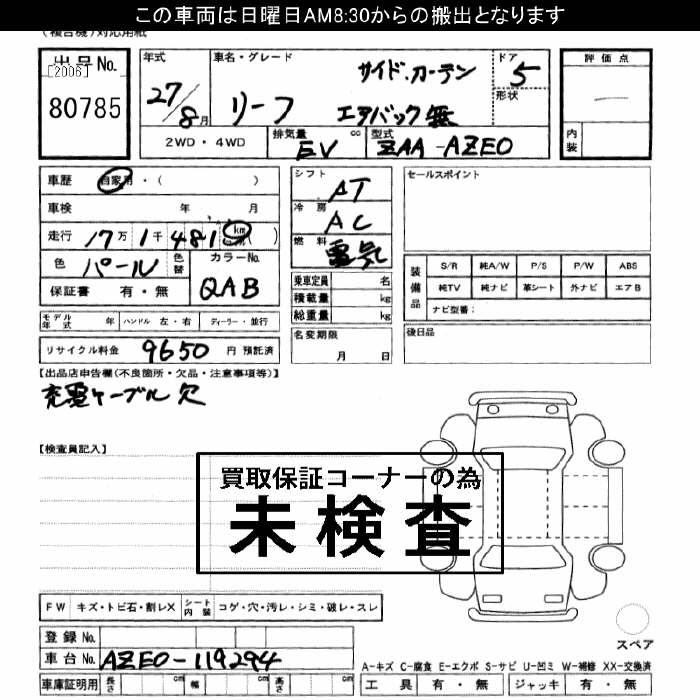 この車両は日曜日AM8:30からの搬出となります
(複合機)対応用紙
出品No.
[2006]
80785
年式
27/8月
車名・グレード
リーフ
サイド.カーテン
エアバック無
ドア
5
形状
2WD・4WD
排気量 cc
EV
型式
ZAA-AZE0
評価点
内装
車歴 自家用・( )
車検 年 月
走行 17万1千481km( )
色 パール 色替
カラーNo.
QAB
保証書 有・無
シフト
AT
冷房
AC
燃料
電気
乗車定員 名
積載量 kg
総重量 kg
セールスポイント
装備品
S/R 純A/W P/S P/W ABS
純TV 純ナビ 革シート 外ナビ エアB
ナビ型番:
モデル年式 年 ハンドル 左・右 ディーラー・並行
名変期限
月 日
後日品
リサイクル料金 9650 円 預託済
【出品店申告欄(不良箇所・欠品・注意事項等)】
充電ケーブル欠
【検査員記入】
買取保証コーナーの為
未検査
FW キズ・トビ石・割レX シート内装 コゲ・穴・汚レ・シミ・破レ・スレ
登録No.
車台No. AZE0-119294
スペア
A-キズ C-腐食 E-エクボ S-サビ U-凹ミ W-補修 XX-交換済
車庫証明用 長さ cm 幅 cm 高さ cm
工具 有・無 ジャッキ 有・無